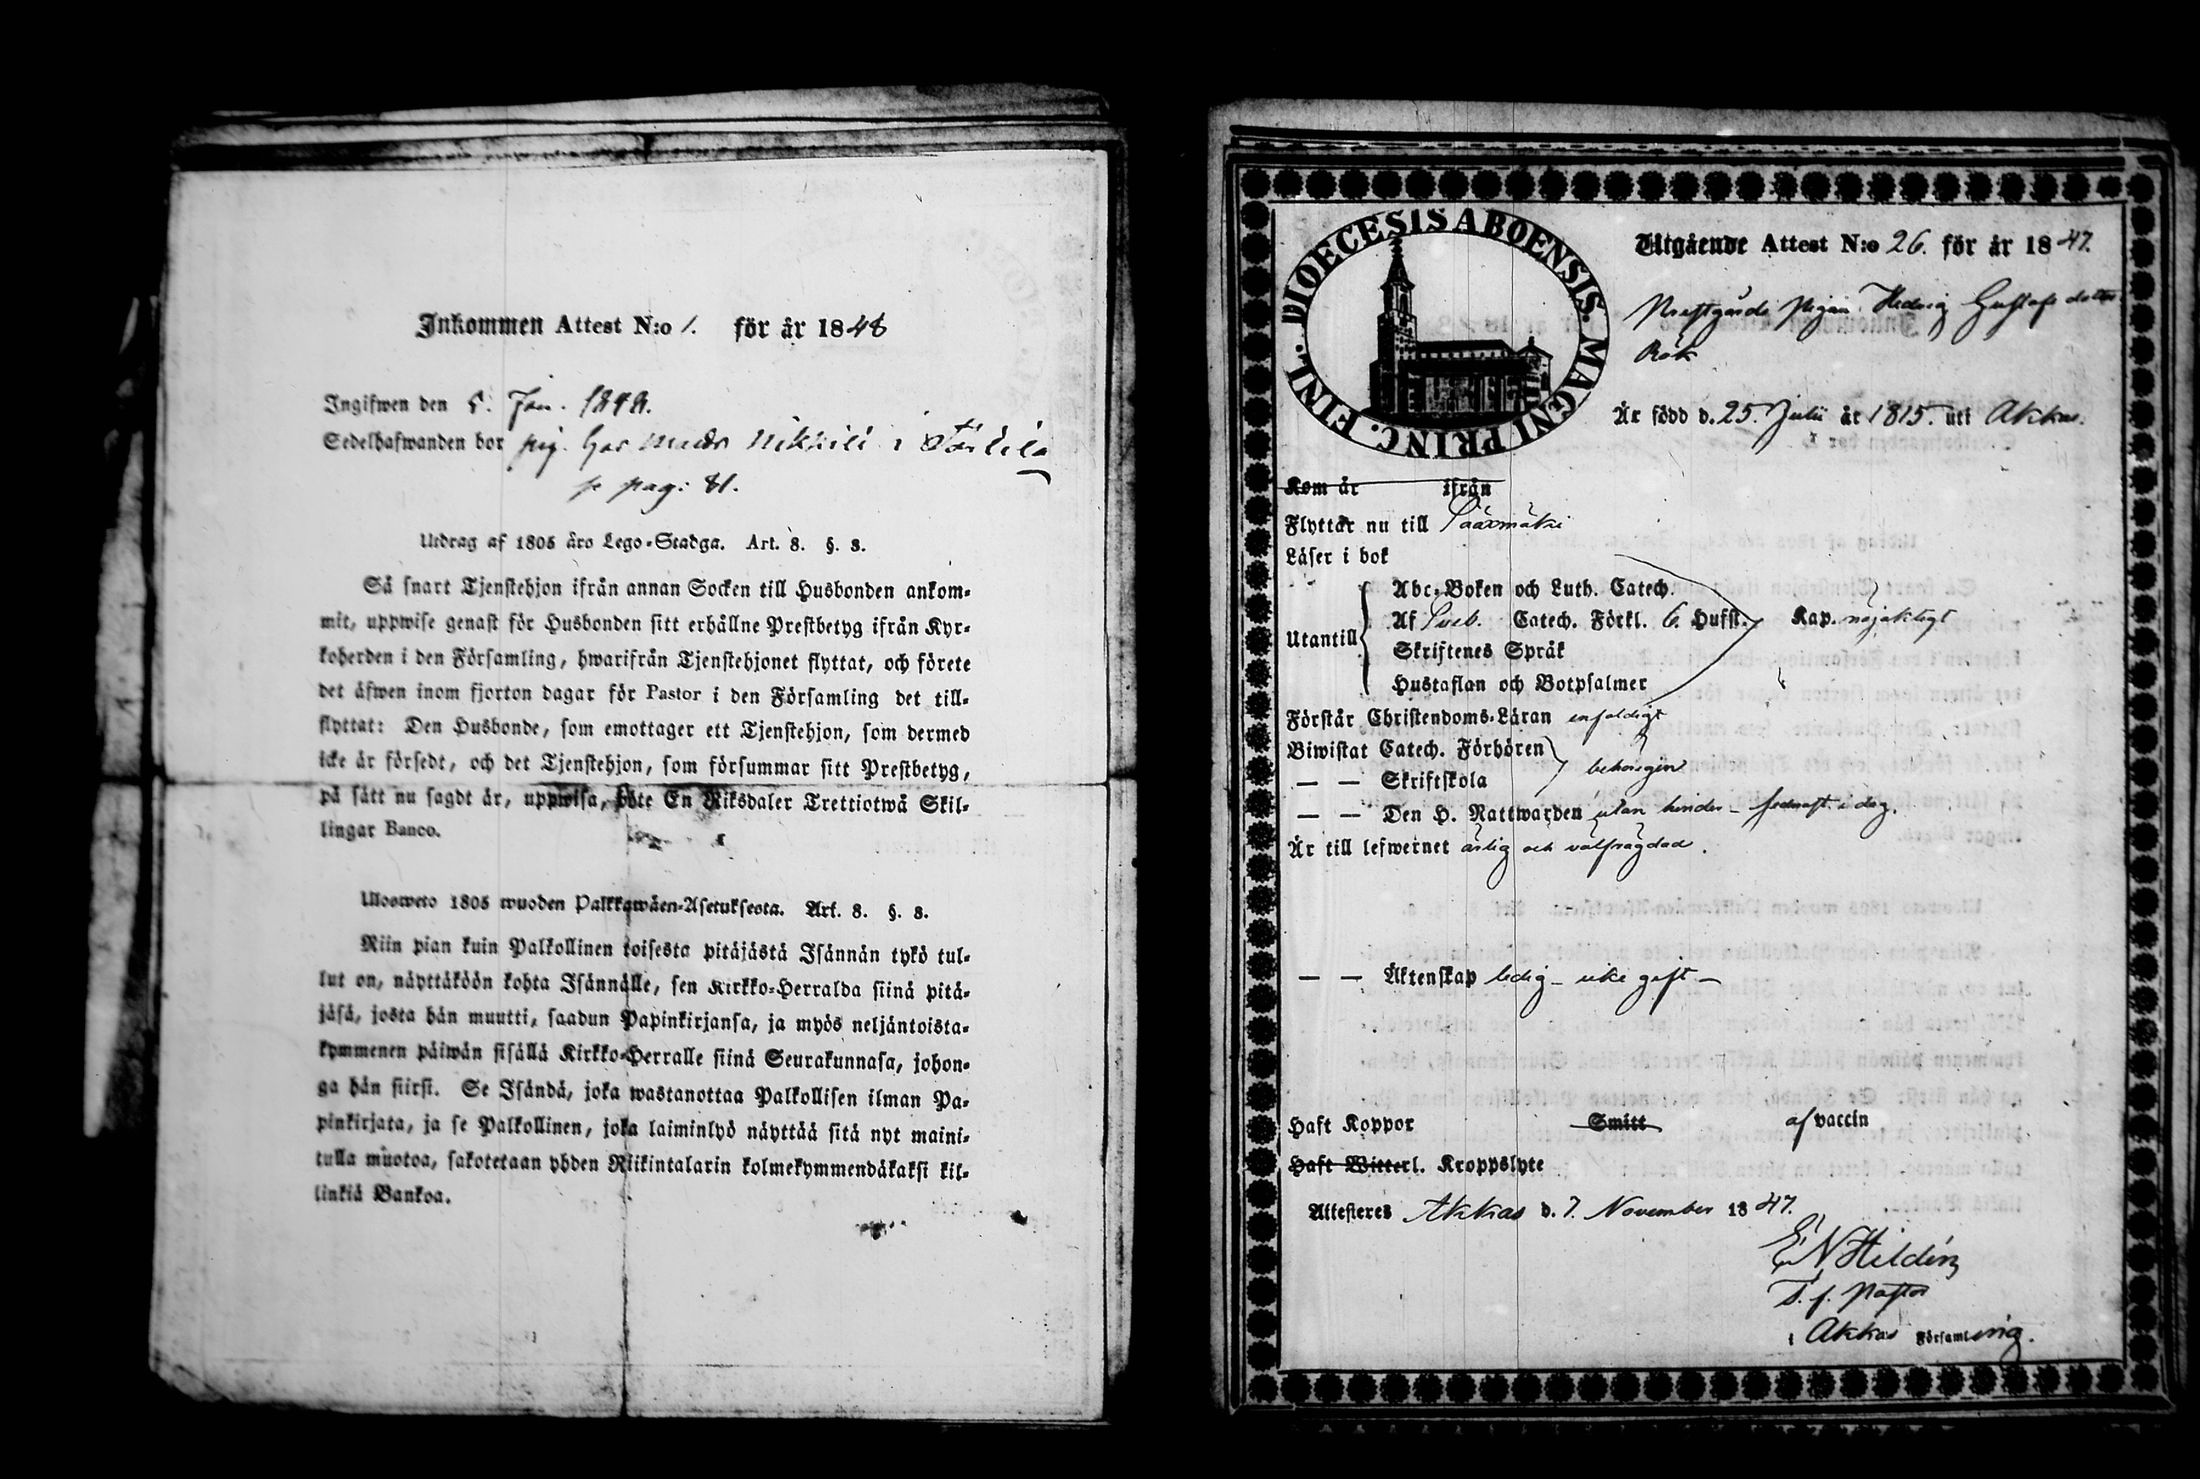 Inkommen Attest N:o 1. för år 1848
Ingifwen den 5. Jan. 1848.
Sedelhafwanden bor pig. hos Nikkilä i
p pag: 81.
Utdrag af 1805 års Lego-Stadga. Art. 8. §. 8.
Så snart Tjenstehjon ifrån annan Socken till Husbonden ankom-
mit, uppwise genast för Husbonden sitt erhållne Prestbetyg ifrån Kyr-
koherden i den Församling, hwarifrån Tjenstehjonet flyttat, och förete
det äfwen inom fjorton dagar för Pastor i den Församling det till-
flyttat: Den Husbonde, som emottager ett Tjenstehjon, som dermed
icke är försedt, och det Tjenstehjon, som försummar sitt Prestbetyg,
på sätt nu sagdt är, uppwisa, böte En Riksdaler Trettiotwå Skil-
lingar Banco.
Ulosweto 1805 wuoden Palkkawäen-Asetuksesta. Art. 8. §. 8.
Niin pian kuin Palkollinen toisesta pitäjästä Isännän tykö tul-
lut on, näyttäköön kohta Isännälle, sen Kirkko-Herralda siinä pitä-
jäsä, josta hän muutti, saadun Papinkirjansa, ja myös neljäntoista-
kymmenen päiwän sisällä Kirkko-Herralle siinä Seurakunnasa, johon-
ga hän siirsi. Se Isändä, joka wastanottaa Palkollisen ilman Pa-
pinkirjata, ja se Palkollinen, joka laiminlyö näyttää sitä nyt maini-
tulla muotoa, sakotetaan yhden Riikintalarin kolmekymmendäkaksi kil-
linkiä Bankoa.
DIOECESIS ABOENSIS. MAGNI PRINC. FINL.
Utgående Attest N:o 26. för år 1847.
Prestgårds Pigan Hedvig Gustafs dotter
Rök
Är född d. 25. Julii år 1815. uti Akkas.
Kom år ifrån
Flyttar nu till Sääxmäki
Läser i bok
Abc-Boken och Luth. Catech.
Utantill Af Sveb. Catech. Förkl. 6. Hufst. Kap. nöjaktigt
Skriftenes Språk
Hustaflan och Botpsalmer
Förstår Christendoms-Läran enfaldigt
Biwistat Catech. Förhören
— — Skriftskola behörigen
— — Den H. Nattwarden utan hinder – sednast i dag.
Är till lefwernet ärlig och välfrägdad.
— — Äktenskap ledig – icke gift –
Haft Koppor Smitt af vaccin
Haft Witterl. Kroppslyte
Attesteres Akkas d. 7. November 1847.
E. N Hildén
T. f. Pastor
i Akkas Församling.